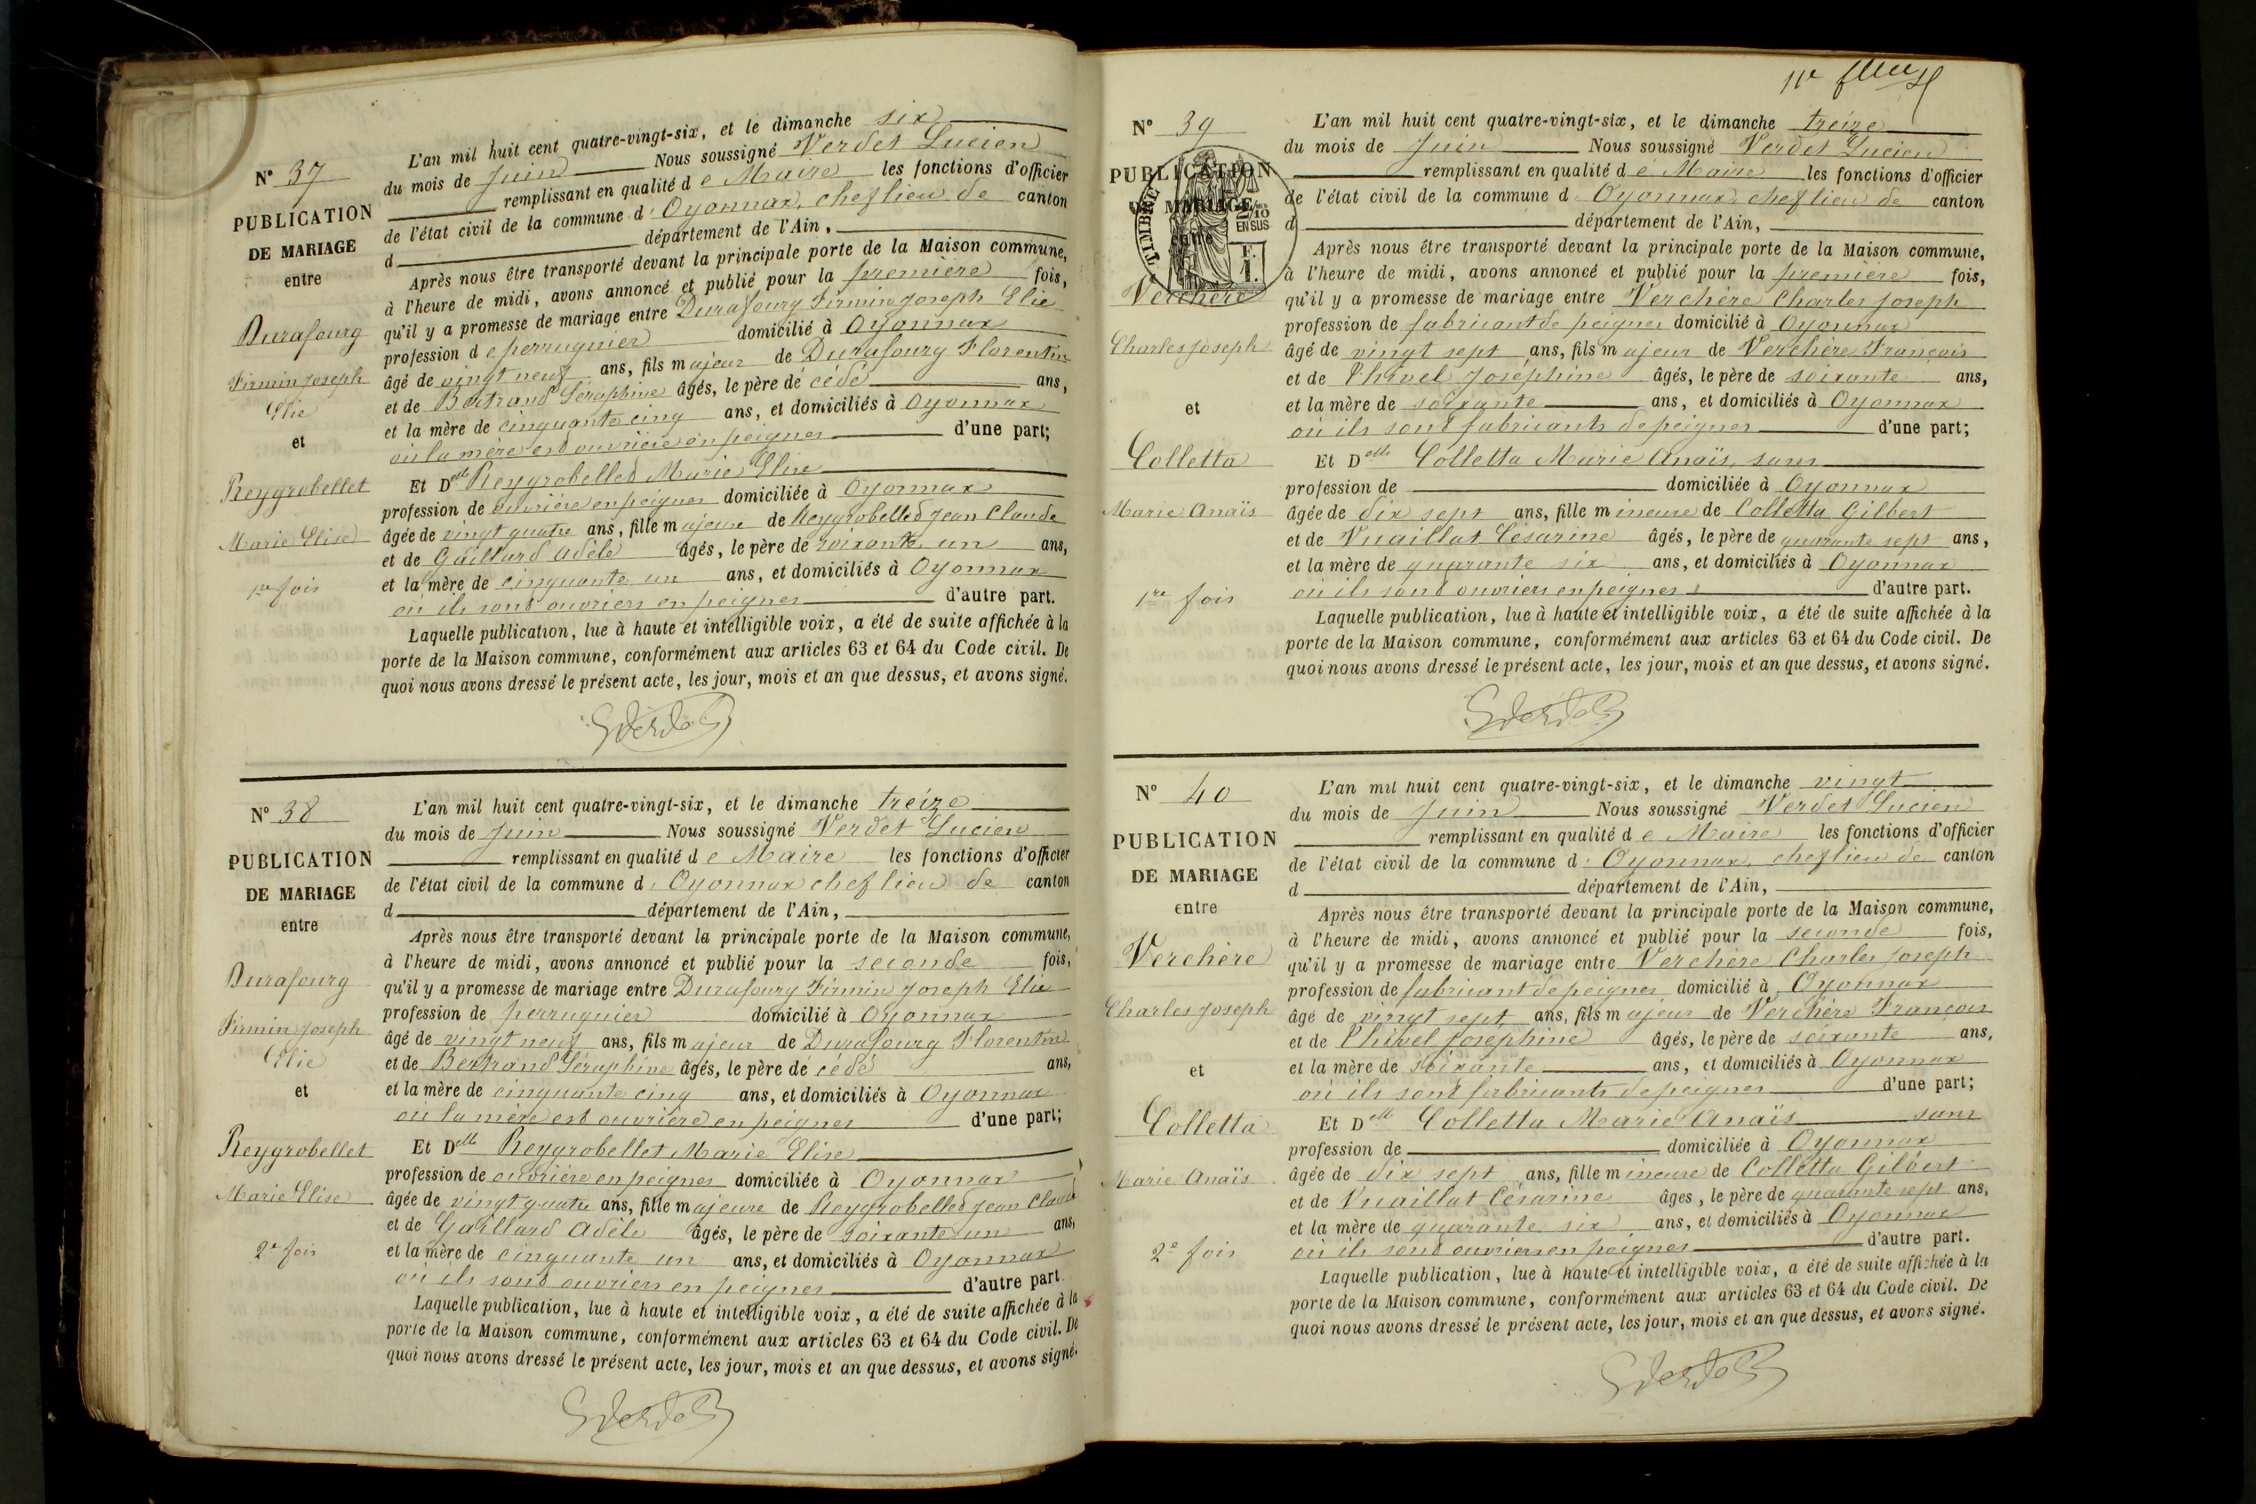 N° 37
PUBLICATION
DE MARIAGE
entre
Durafourg
Firmin Joseph
Elie
et
Reygrobellet
Marie Elise
1re fois
L'an mil huit cent quatre-vingt-six, et le dimanche six
du mois de Juin Nous soussigné Verdet Lucien
remplissant en qualité de Maire les fonctions d'officier
de l'état civil de la commune d'Oyonnax, chef lieu de canton
d département de l'Ain,
Après nous être transporté devant la principale porte de la Maison commune,
à l'heure de midi, avons annoncé et publié pour la première fois,
qu'il y a promesse de mariage entre Durafourg Firmin Joseph Elie
profession de perruquier domicilié à Oyonnax
âgé de vingt neuf ans, fils majeur de Durafourg Florentin
et de Bertrand Séraphine âgés, le père dé cédé ans,
et la mère de cinquante cinq ans, et domiciliés à Oyonnax
où la mère est ouvrière en peignes d'une part;
Et Delle Reygrobellet Marie Elise
profession de ouvrière en peignes domiciliée à Oyonnax
âgée de vingt quatre ans, fille majeure de Reygrobellet Jean Claude
et de Gaillard Adèle âgés, le père de soixante un ans,
et la mère de cinquante un ans, et domiciliés à Oyonnax
où ils sont ouvriers en peignes d'autre part.
Laquelle publication, lue à haute et intelligible voix, a été de suite affichée à la
porte de la Maison commune, conformément aux articles 63 et 64 du Code civil. De
quoi nous avons dressé le présent acte, les jour, mois et an que dessus, et avons signé.
N° 38
PUBLICATION
DE MARIAGE
entre
Durafourg
Firmin Joseph
Elie
et
Reygrobellet
Marie Elise
2e fois
L'an mil huit cent quatre-vingt-six, et le dimanche treize
du mois de Juin Nous soussigné Verdet Lucien
remplissant en qualité de Maire les fonctions d'officier
de l'état civil de la commune d'Oyonnax chef lieu de canton
d département de l'Ain,
Après nous être transporté devant la principale porte de la Maison commune,
à l'heure de midi, avons annoncé et publié pour la seconde fois,
qu'il y a promesse de mariage entre Durafourg Firmin Joseph Elie
profession de perruquier domicilié à Oyonnax
âgé de vingt neuf ans, fils majeur de Durafourg Florentin
et de Bertrand Séraphine âgés, le père dé cédé ans,
et la mère de cinquante cinq ans, et domiciliés à Oyonnax
où la mère est ouvrière en peignes d'une part;
Et Delle Reygrobellet Marie Elise
profession de ouvrière en peignes domiciliée à Oyonnax
âgée de vingt quatre ans, fille majeure de Reygrobellet Jean Claude
et de Gaillard Adèle âgés, le père de soixante un ans,
et la mère de cinquante un ans, et domiciliés à Oyonnax
où ils sont ouvriers en peignes d'autre part.
Laquelle publication, lue à haute et intelligible voix, a été de suite affichée à la
porte de la Maison commune, conformément aux articles 63 et 64 du Code civil. De
quoi nous avons dressé le présent acte, les jour, mois et an que dessus, et avons signé.
N° 39
PUBLICATION
DE MARIAGE
entre
TIMBRE
2/10
EN SUS
F.
1.
Verchère
Charles Joseph
et
Colletta
Marie Anaïs
1re fois
L'an mil huit cent quatre-vingt-six, et le dimanche treize
du mois de Juin Nous soussigné Verdet Lucien
remplissant en qualité de Maire les fonctions d'officier
de l'état civil de la commune d'Oyonnax chef lieu de canton
d département de l'Ain,
Après nous être transporté devant la principale porte de la Maison commune,
à l'heure de midi, avons annoncé et publié pour la première fois,
qu'il y a promesse de mariage entre Verchère Charles Joseph
profession de fabricant de peignes domicilié à Oyonnax
âgé de vingt sept ans, fils majeur de Verchère François
et de Joséphine âgés, le père de soixante ans,
et la mère de soixante ans, et domiciliés à Oyonnax
où ils sont fabricants de peignes d'une part;
Et Delle Colletta Marie Anaïs, sans
profession de domiciliée à Oyonnax
âgée de dix sept ans, fille mineure de Colletta Gilbert
et de Vuaillat Césarine âgés, le père de quarante sept ans,
et la mère de quarante six ans, et domiciliés à Oyonnax
où ils sont ouvriers en peignes d'autre part.
Laquelle publication, lue à haute et intelligible voix, a été de suite affichée à la
porte de la Maison commune, conformément aux articles 63 et 64 du Code civil. De
quoi nous avons dressé le présent acte, les jour, mois et an que dessus, et avons signé.
N° 40
PUBLICATION
DE MARIAGE
entre
Verchère
Charles Joseph
et
Colletta
Marie Anaïs
2e fois
L'an mil huit cent quatre-vingt-six, et le dimanche vingt
du mois de Juin Nous soussigné Verdet Lucien
remplissant en qualité de Maire les fonctions d'officier
de l'état civil de la commune d'Oyonnax, chef lieu de canton
d département de l'Ain,
Après nous être transporté devant la principale porte de la Maison commune,
à l'heure de midi, avons annoncé et publié pour la seconde fois,
qu'il y a promesse de mariage entre Verchère Charles Joseph
profession de fabricant de peignes domicilié à Oyonnax
âgé de vingt sept ans, fils majeur de Verchère François
et de Joséphine âgés, le père de soixante ans,
et la mère de soixante ans, et domiciliés à Oyonnax
où ils sont fabricants de peignes d'une part;
Et Delle Colletta Marie Anaïs sans
profession de domiciliée à Oyonnax
âgée de dix sept ans, fille mineure de Colletta Gilbert
et de Vuaillat Césarine âgés, le père de quarante sept ans,
et la mère de quarante six ans, et domiciliés à Oyonnax
où ils sont ouvriers en peignes d'autre part.
Laquelle publication, lue à haute et intelligible voix, a été de suite affichée à la
porte de la Maison commune, conformément aux articles 63 et 64 du Code civil. De
quoi nous avons dressé le présent acte, les jour, mois et an que dessus, et avons signé.